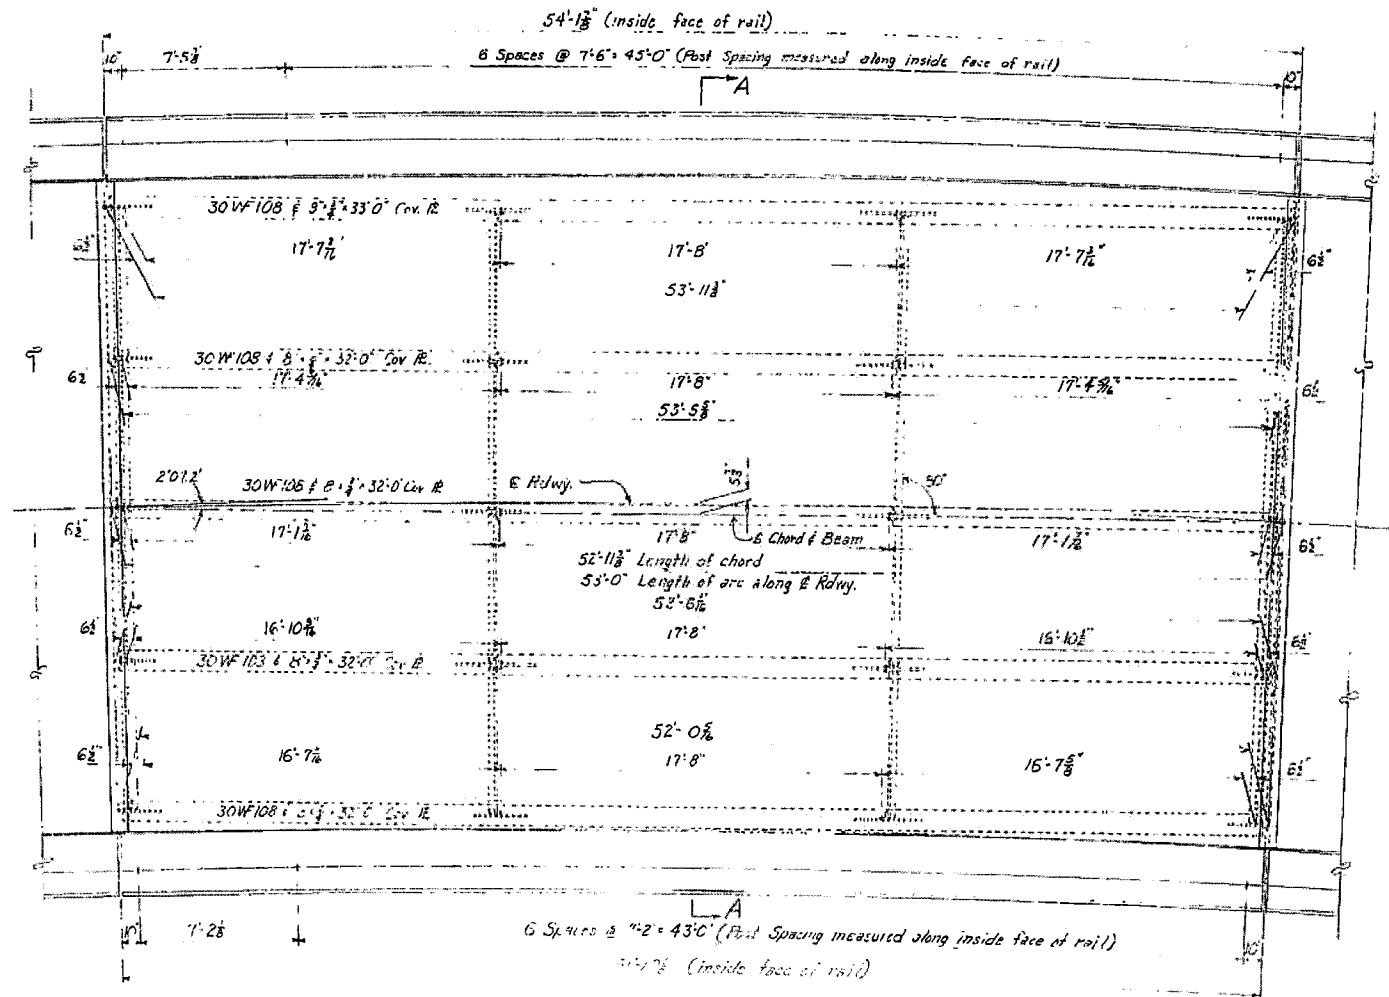 54'-1⅞" (inside face of rail)
10" 7'-5⅞" 6 Spaces @ 7'-6" = 45'-0" (Post Spacing measured along inside face of rail) 10"
A
30 WF 108 & 9" × ¾" × 33'0" Cov. PL
17'-7 3/16" 17'-8" 17'-7 3/16" 6½"
53'-11⅜"
30 WF 108 & 8 × 32'-0" Cov PL
6½ 17'-4 5/16" 17'-8" 17'-4 5/16"
53'-5⅝"
2°07.2' 30 WF 108 & 8 × ¾ × 32'-0" Cov PL ℄ Rdwy. 90°
6½" 17'-1 3/16" 17'8" ℄ Chord & Beam 17'-1 3/16" 6½"
52'-11⅜" Length of chord
53'-0" Length of arc along ℄ Rdwy.
52'-6 1/16"
6½" 16'-10 17'-8" 16'-10 6½"
30 WF 108 & 8" × ¾" × 32'-0" Cov PL
52'-0 5/16"
6½" 16'-7 17'-8" 16'-7⅝" 6½"
30 WF 108 & 32'-0" Cov PL
A
10" 7'-2⅛ 6 Spaces @ 7'-2" = 43'0" (Post Spacing measured along inside face of rail) 10"
(inside face of rail)